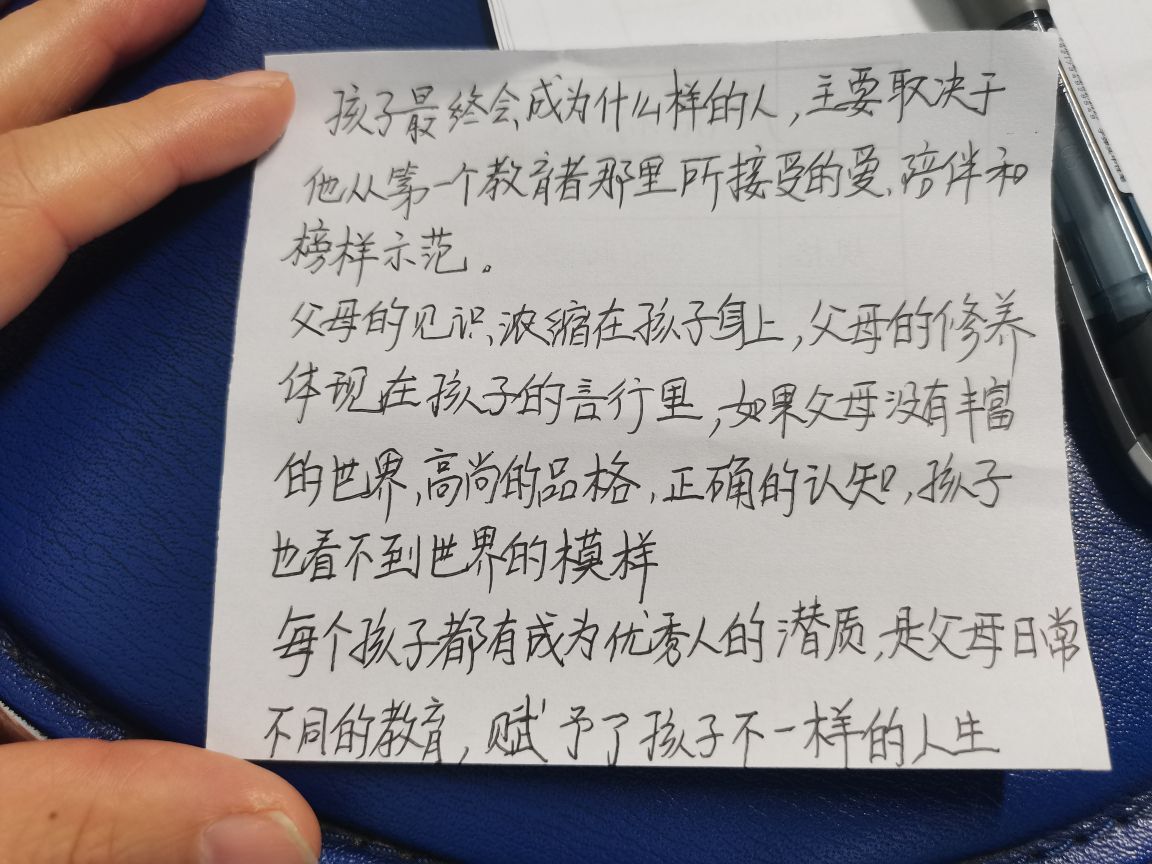 孩子最终会成为什么样的人，主要取决于
他从第一个教育者那里所接受的爱、陪伴和
榜样示范。
父母的见识浓缩在孩子身上，父母的修养
体现在孩子的言行里，如果父母没有丰富
的世界，高尚的品格，正确的认知，孩子
也看不到世界的模样
每个孩子都有成为优秀人的潜质，是父母日常
不同的教育，赋予了孩子不一样的人生